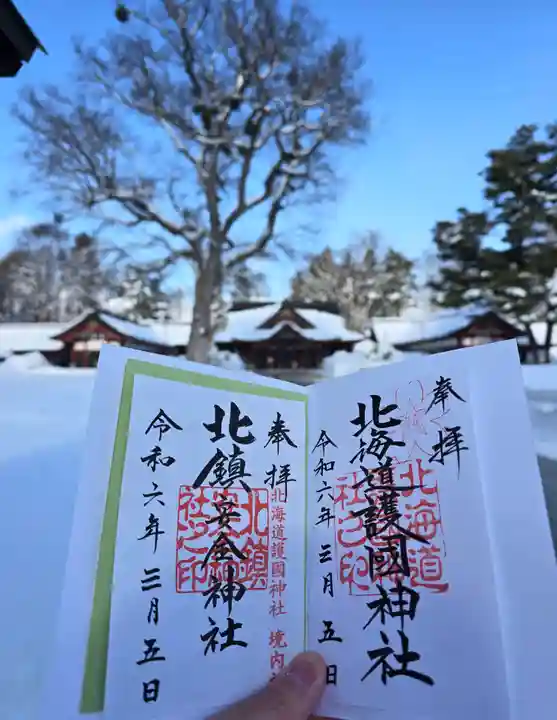 奉拝
北海道護國神社
令和六年三月五日
北海道
社之印
奉拝
北海道護國神社 境内
北鎮安全神社
令和六年三月五日
北鎮
社之印